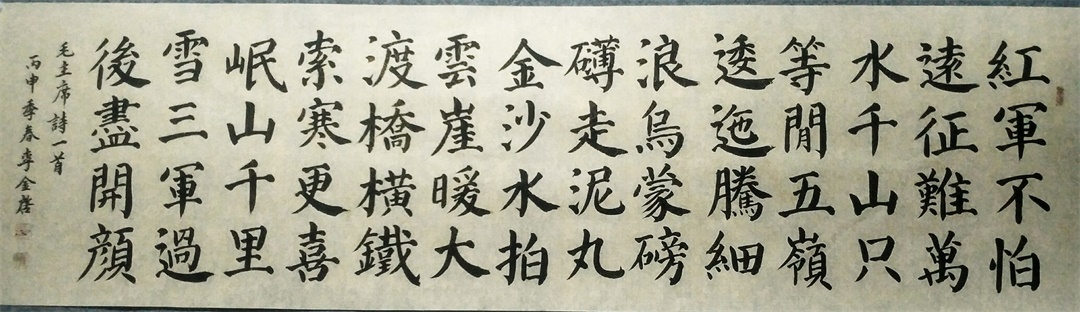 紅軍不怕
遠征難萬
水千山只
等閒五嶺
逶迤騰細
浪烏蒙磅
礴走泥丸
金沙水拍
雲崖暖大
渡橋橫鐵
索寒更喜
岷山千里
雪三軍過
後盡開顏
毛主席詩一首
丙申季春李金